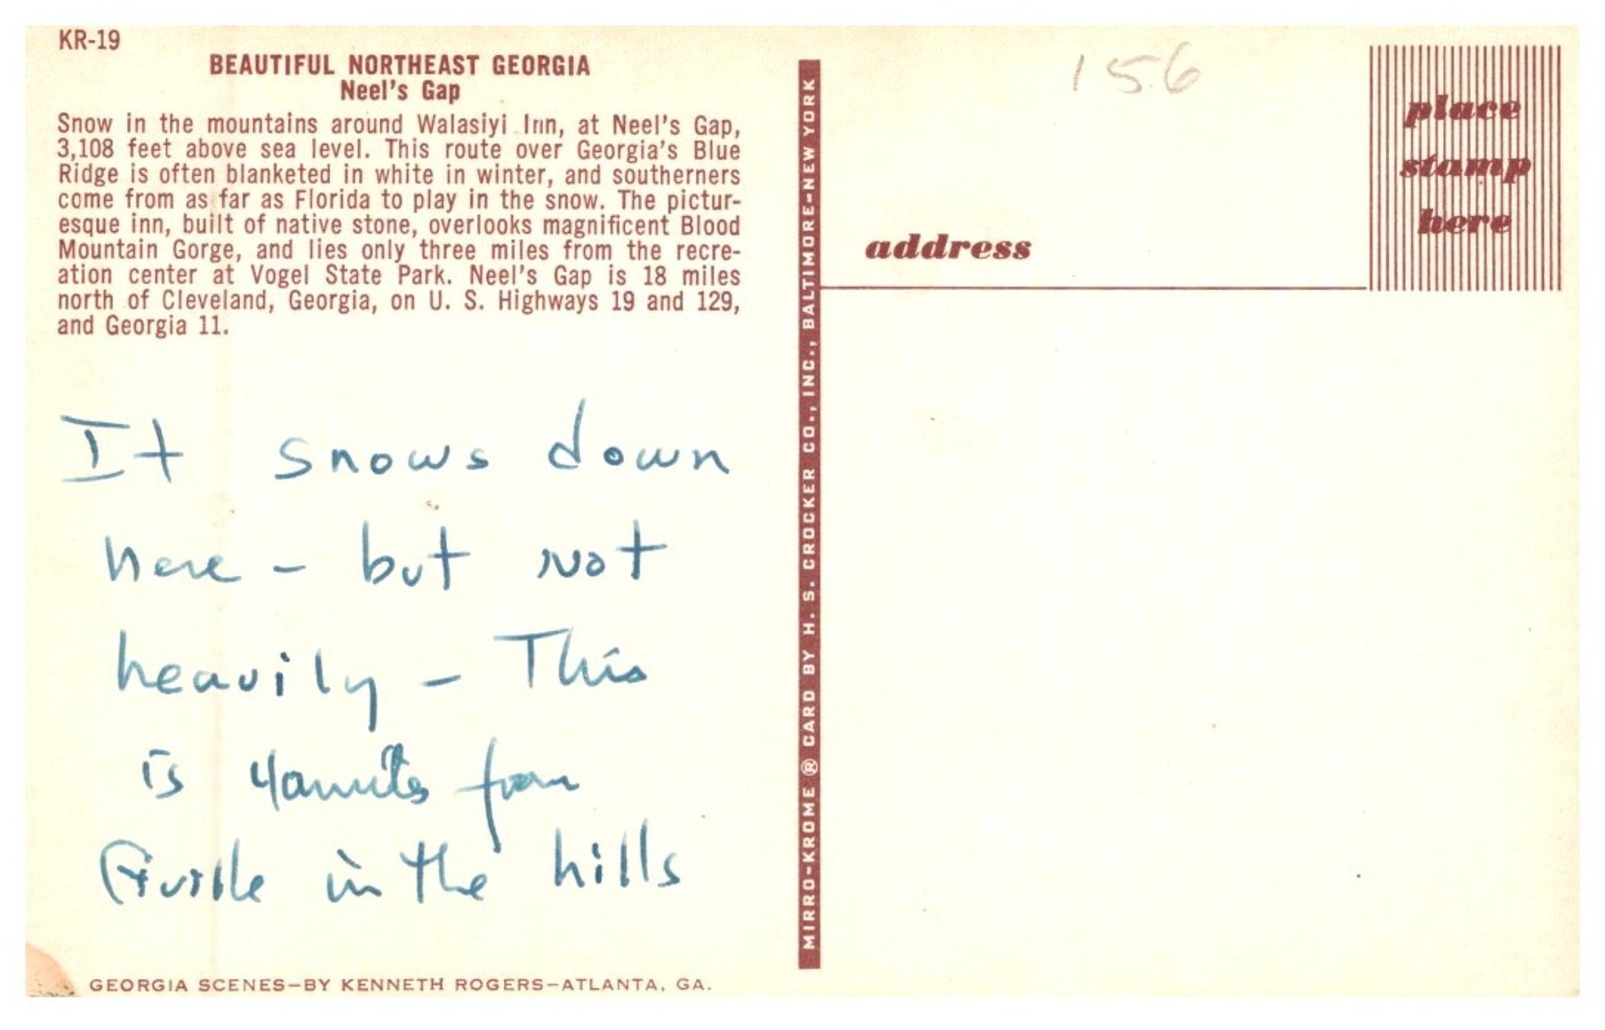 KR-19
BEAUTIFUL NORTHEAST GEORGIA
Neel's Gap
Snow in the mountains around Walasiyi Inn, at Neel's Gap,
3,108 feet above sea level. This route over Georgia's Blue
Ridge is often blanketed in white in winter, and southerners
come from as far as Florida to play in the snow. The pictur-
esque inn, built of native stone, overlooks magnificent Blood
Mountain Gorge, and lies only three miles from the recre-
ation center at Vogel State Park. Neel's Gap is 18 miles
north of Cleveland, Georgia, on U. S. Highways 19 and 129,
and Georgia 11.
It snows down
here - but not
heavily - This
is from
in the hills
GEORGIA SCENES-BY KENNETH ROGERS-ATLANTA, GA.
MIRRO-KROME ® CARD BY H. S. CROCKER CO., INC., BALTIMORE-NEW YORK
156
place
stamp
here
address